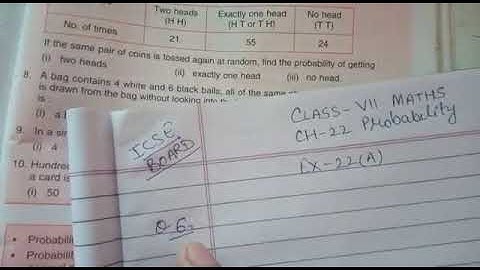 Two heads Exactly one head No head
(H H) (H T or T H) (T T)
No. of times 21 55 24
If the same pair of coins is tossed again at random, find the probability of getting
(i) two heads (ii) exactly one head (iii) no head.
8. A bag contains 4 white and 6 black balls, all of the same
is drawn from the bag without looking into
is :
(i) a
9. In a sin
(i) 4
10. Hundred
a card is
(i) 50
• Probabili
• Probabili
ICSE
BOARD
CLASS-VII MATHS
CH-22 Probability
EX-22(A)
Q 6: